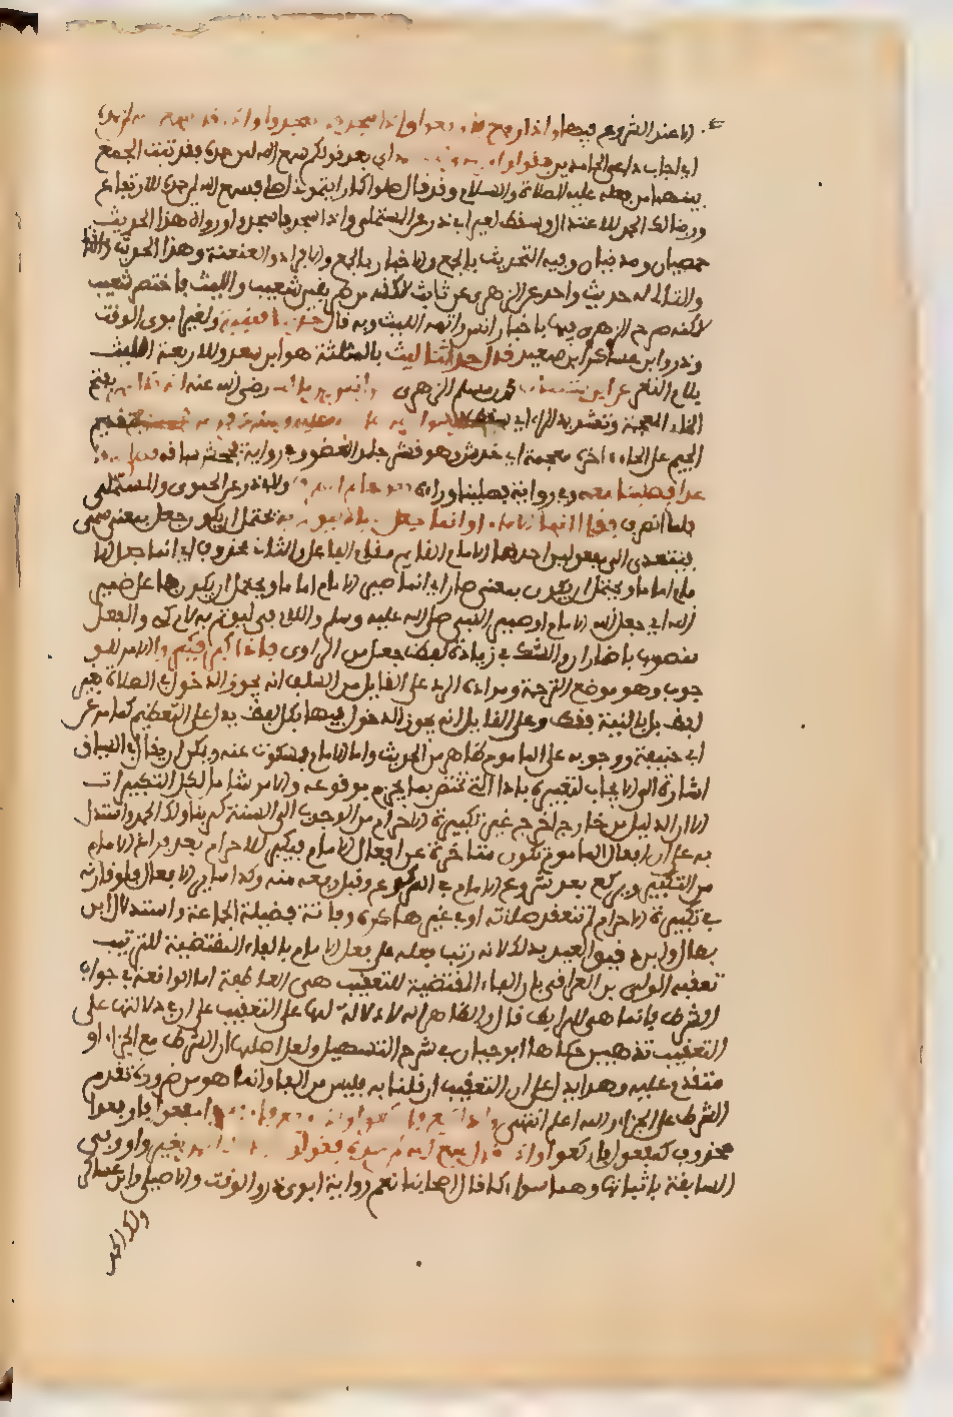 الا عند الشروع فيها واذا رفع فارفعوا واذا سجد فاسجدوا واذا قال سمع الله لمن حمده
اي اجاب دعاء الحامدين فقولوا ربنا ولك الحمد اي بعد قولكم سمع الله لمن حمده فقد ثبت الجمع
بينهما من فعله عليه الصلاة والسلام وقد قال صلوا كما رايتموني اصلي فسمع الله لمن حمده للارتفاع
وربنا لك الحمد للاعتدال وسقط لغير ابي ذر عن المستملي واذا سجد فاسجدوا ورواة هذا الحديث
حمصيان ومدنيان وفيه التحديث بالجمع والاخبار بالجمع والافراد والعنعنة وهذا الحديث
والتالي له حديث واحد عن الزهري عن ثابت لكنه من طريقين شعيب والليث فاختصر شعيب
لكنه صرح الزهري فيها باخبار انس واتمه الليث وبه قال حدثنا قتيبة ولغير ابوي الوقت
وذر وابن عساكر ابن سعيد قال حدثنا ليث بالمثلثة هو ابن سعد وللاربعة الليث
بلام التعريف عن ابن شهاب محمد بن مسلم الزهري عن انس بن مالك رضي الله عنه انه قال بفتح
الخاء المعجمة وتشديد الراء اي سقط رسول الله صلى الله عليه وسلم عن فرس فجحش بتقديم
الجيم على الحاء اخره معجمة اي خدش وهو قشر جلد العضو وفي رواية فجحش ساقه فصلى لنا
قاعدا فصلينا معه وفي رواية فصلينا وراءه قعودا ولابي ذر عن الحموي والمستملي
فلما انصرف فقال انما الامام او انما جعل الامام ليؤتم به يحتمل ان يكون جعل بمعنى سمى
فيتعدى الى مفعولين احدهما الامام القايم مقام الفاعل والثاني محذوف اي انما جعل الا
مام اماما ويحتمل ان يكون بمعنى صار اي انما صير الامام اماما ويحتمل ان يكون فاعله ضمير
الله اي جعل الله الامام او ضمير النبي صلى الله عليه وسلم واللام في ليوتم به لام كي والفعل
منصوب باضمار ان والشك في زيادة لفظ جعل من الراوي فاذا كبر فكبروا الامر للو
جوب وهو موضع الترجمة ومراده الرد على القايل من السلف انه يجوز الدخول في الصلاة بغير
لفظ بل بالنية فقط وعلى القايل انه يجوز الدخول فيها بكل لفظ يدل على التعظيم كما مر عن
ابي حنيفة ووجوبه على الماموم ظاهر من الحديث واما الامام فمسكوت عنه ويمكن ان يقال في السياق
اشارة الى الايجاب لتعبيره باذا التي تختص بما يجزم بوقوعه والامر شامل لكل التكبيرات
الا ان الدليل من خارج اخرج غير تكبيرة الاحرام من الوجوب الى السنة كربنا ولك الحمد واستدل
به على ان افعال الماموم تكون متاخرة عن افعال الامام فيكبر للاحرام بعد فراغ الامام
من التكبير ويركع بعد شروع الامام في الركوع وقبل رفعه منه وكذا سائر الافعال فلو قارنه
في تكبيرة الاحرام لم تنعقد صلاته او في غيرها كره وفاتته فضيلة الجماعة واستدلال ابن
بطال وابن دقيق العيد بذلك لانه رتب فعله على فعل الامام بالفاء المقتضية للترتيب
تعقبه الولي بن العراقي بان الفاء المقتضية للتعقيب هي العاطفة اما الواقعة في جواب
الشرط فانما هي للربط قال والظاهر انه لا دلالة لها على التعقيب على ان في دلالتها على
التعقيب مذهبين حكاهما ابو حيان في شرح التسهيل ولعل اصلهما ان الشرط مع الجزاء او
متقدم عليه وهذا يدل على ان التعقيب ان قلنا به فليس من الفاء وانما هو من ضرورة تقدم
الشرط على الجزاء والله اعلم انتهى واذا ركع فاركعوا واذا رفع فارفعوا
محذوف كمفعول اركعوا واذا قال سمع الله لمن حمده فقولوا ربنا لك الحمد بغير واو وفي
السابقة باثباتها وهما سواء كما قال اصحابنا نعم رواية ابوي ذر والوقت والاصيلي وابن عساكر
ولك الحمد